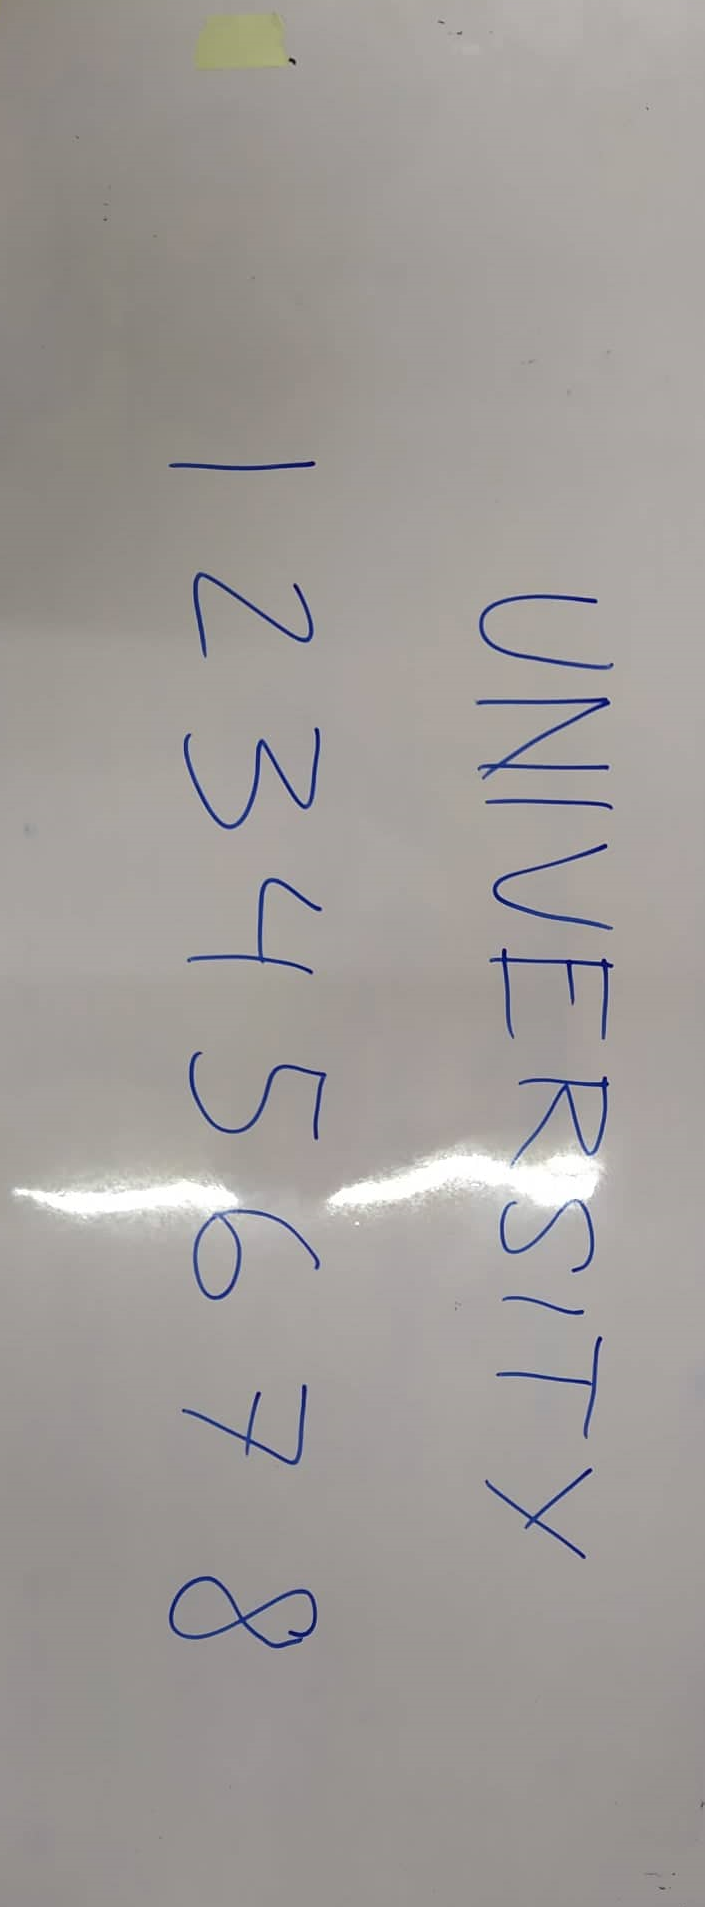 UNIVERSITY
1 2 3 4 5 6 7 8